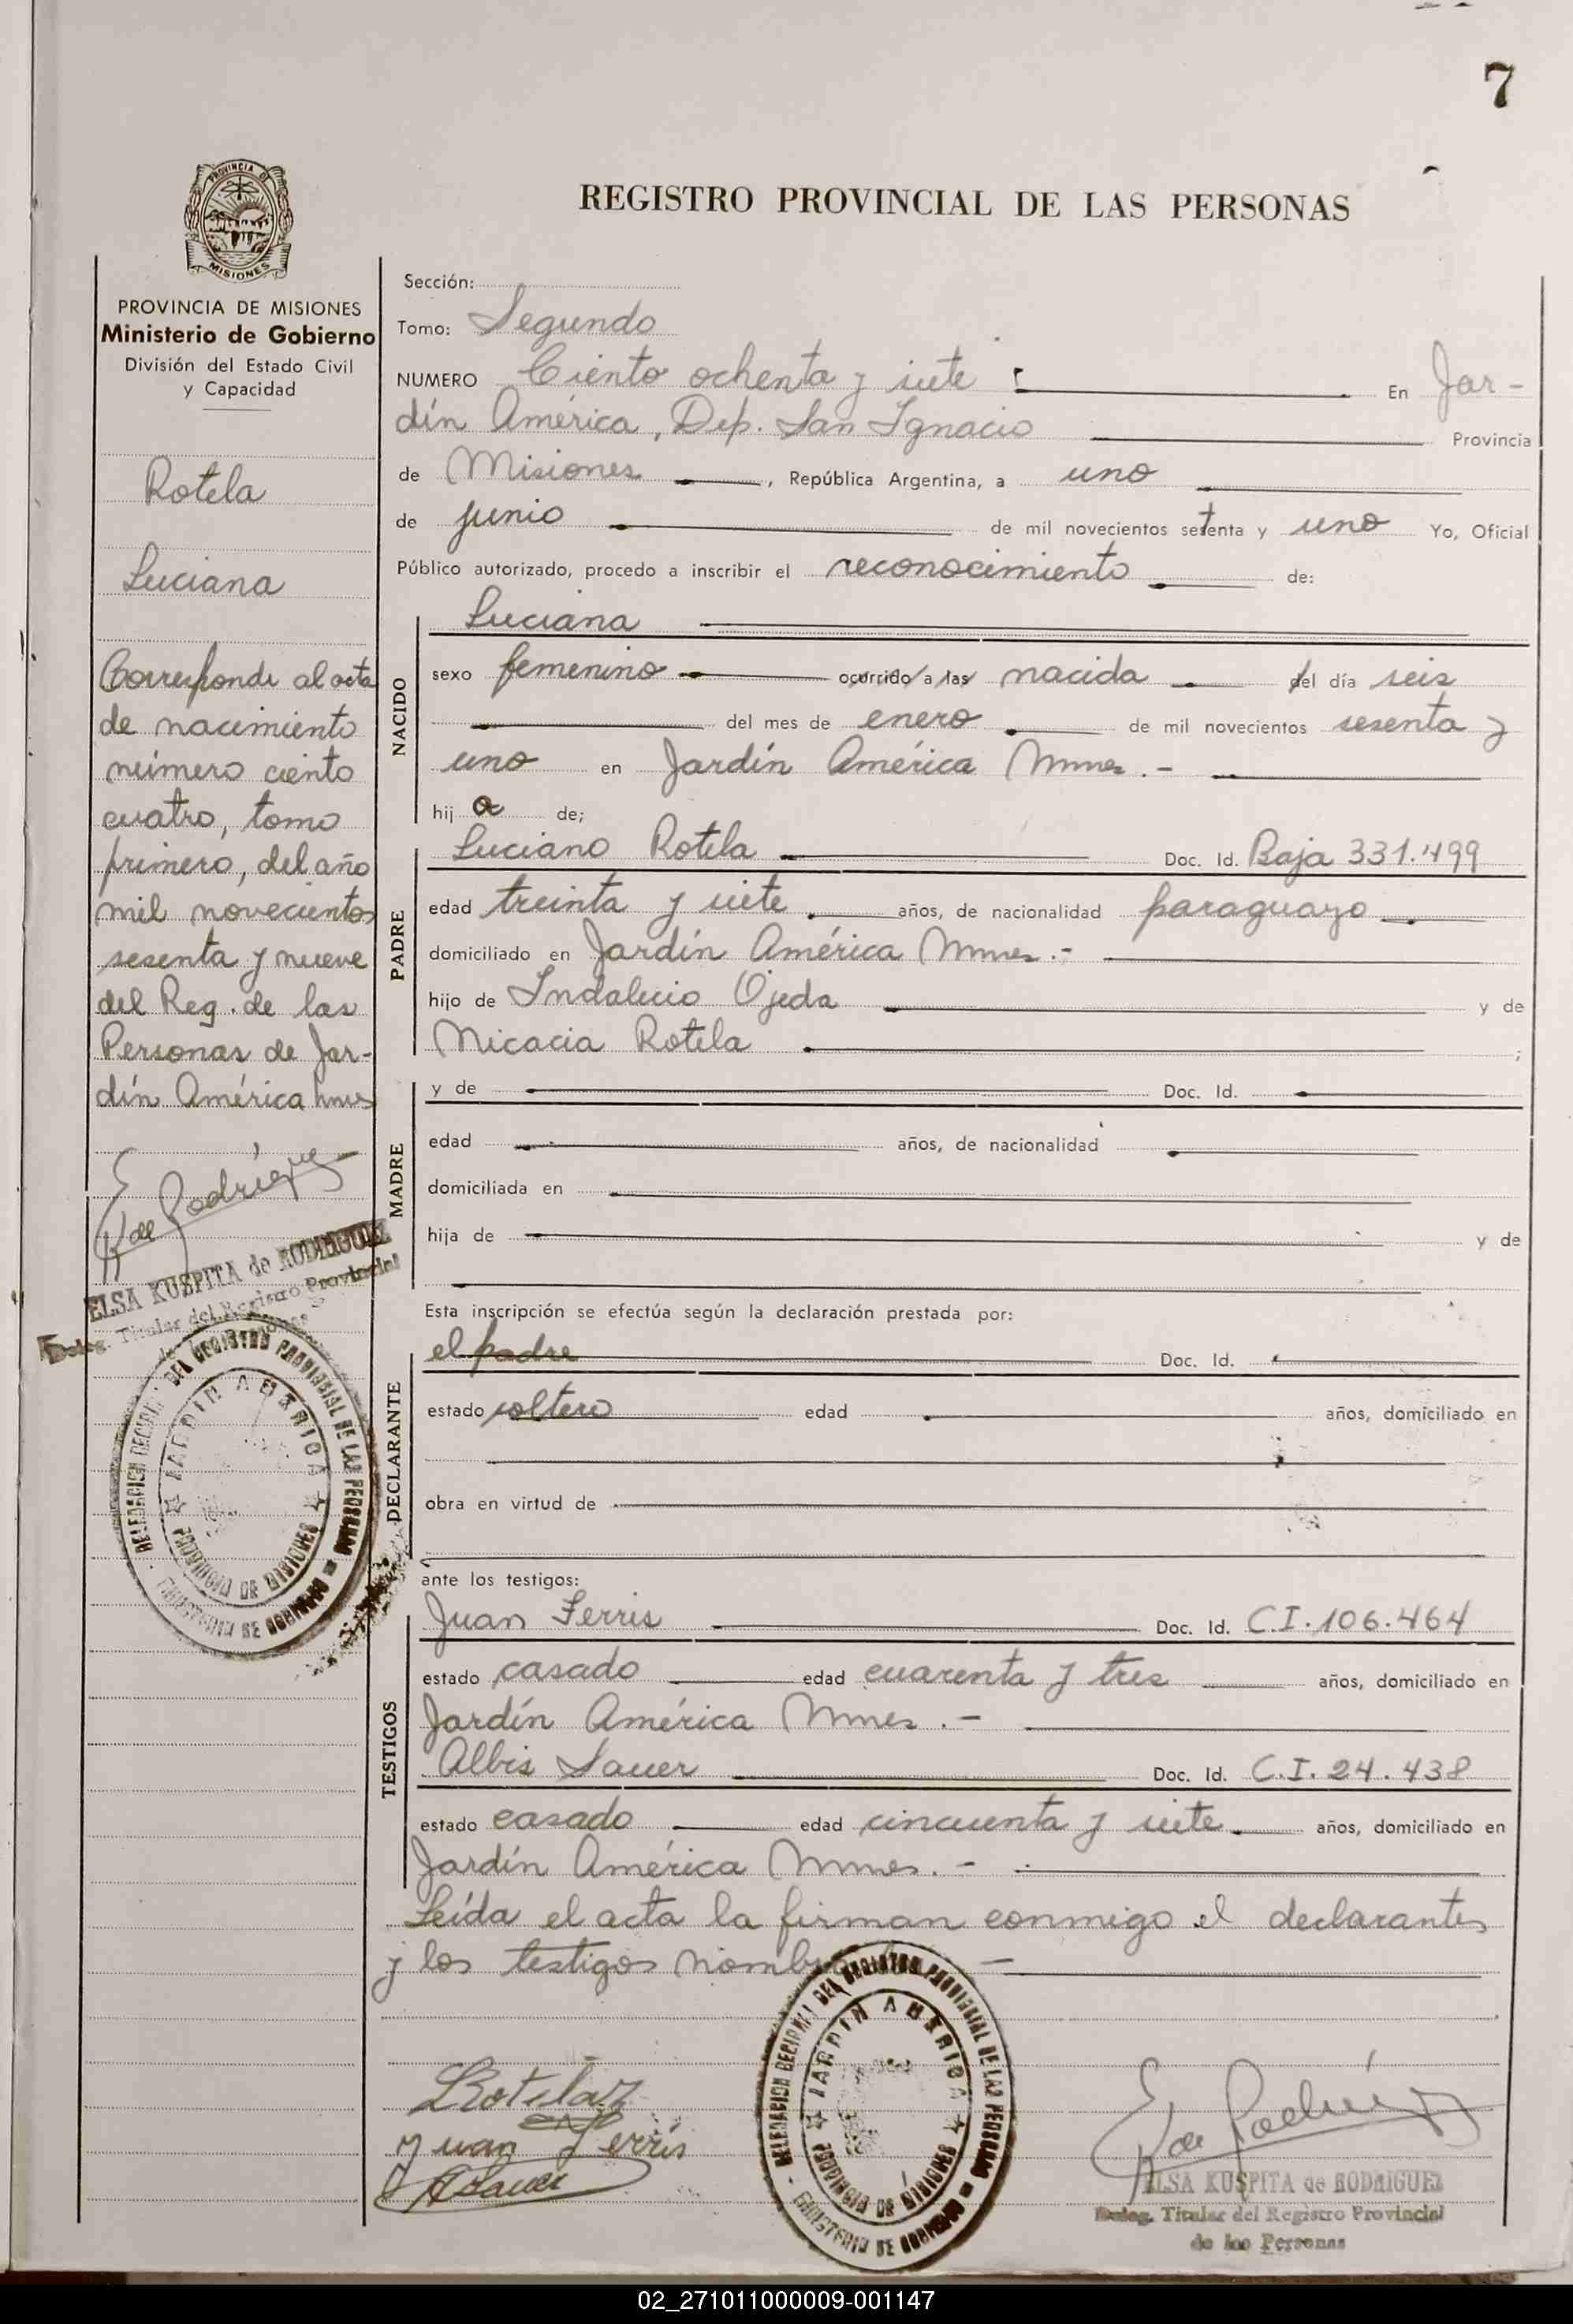 7
PROVINCIA DE
MISIONES
REGISTRO PROVINCIAL DE LAS PERSONAS
PROVINCIA DE MISIONES
Ministerio de Gobierno
División del Estado Civil
y Capacidad
Rotela
Luciana
Corresponde al acta
de nacimiento
número ciento
cuatro, tomo
primero, del año
mil novecientos
sesenta y nueve
del Reg. de las
Personas de Jar-
dín América Mnes
E K de Rodríguez
ELSA KUSPITA de RODRIGUEZ
Deleg. Titular del Registro Provincial
DELEGACION DEL REGISTRO PROVINCIAL DE LAS PERSONAS
JARDIN AMERICA
PROVINCIA DE MISIONES
MINISTERIO DE GOBIERNO
Sección:
Tomo: Segundo
NUMERO Ciento ochenta y siete : En Jar-
dín América, Dep. San Ignacio Provincia
de Misiones , República Argentina, a uno
de junio de mil novecientos setenta y uno Yo, Oficial
Público autorizado, procedo a inscribir el reconocimiento de:
NACIDO
Luciana
sexo femenino ocurrido a las nacida del día seis
del mes de enero de mil novecientos sesenta y
uno en Jardín América Mnes.-
hij a de;
PADRE
Luciano Rotela Doc. Id. Baja 331.499
edad treinta y siete años, de nacionalidad paraguayo
domiciliado en Jardín América Mnes.-
hijo de Indalecio Ojeda y de
Micacia Rotela ;
MADRE
y de Doc. Id.
edad años, de nacionalidad
domiciliada en
hija de y de
Esta inscripción se efectúa según la declaración prestada por:
DECLARANTE
el padre Doc. Id.
estado soltero edad años, domiciliado en
obra en virtud de
ante los testigos:
TESTIGOS
Juan Ferris Doc. Id. C.I. 106.464
estado casado edad cuarenta y tres años, domiciliado en
Jardín América Mnes.-
Albis Sauer Doc. Id. C.I. 24.438
estado casado edad cincuenta y siete años, domiciliado en
Jardín América Mnes.-
Leída el acta la firman conmigo el declarantes
y los testigos
LRotela
Juan Ferris
ASauer
DELEGACION DEL REGISTRO PROVINCIAL DE LAS PERSONAS
JARDIN AMERICA
PROVINCIA DE MISIONES
MINISTERIO DE GOBIERNO
E K de Rodríguez
ELSA KUSPITA de RODRIGUEZ
Deleg. Titular del Registro Provincial
de las Personas
02_271011000009-001147